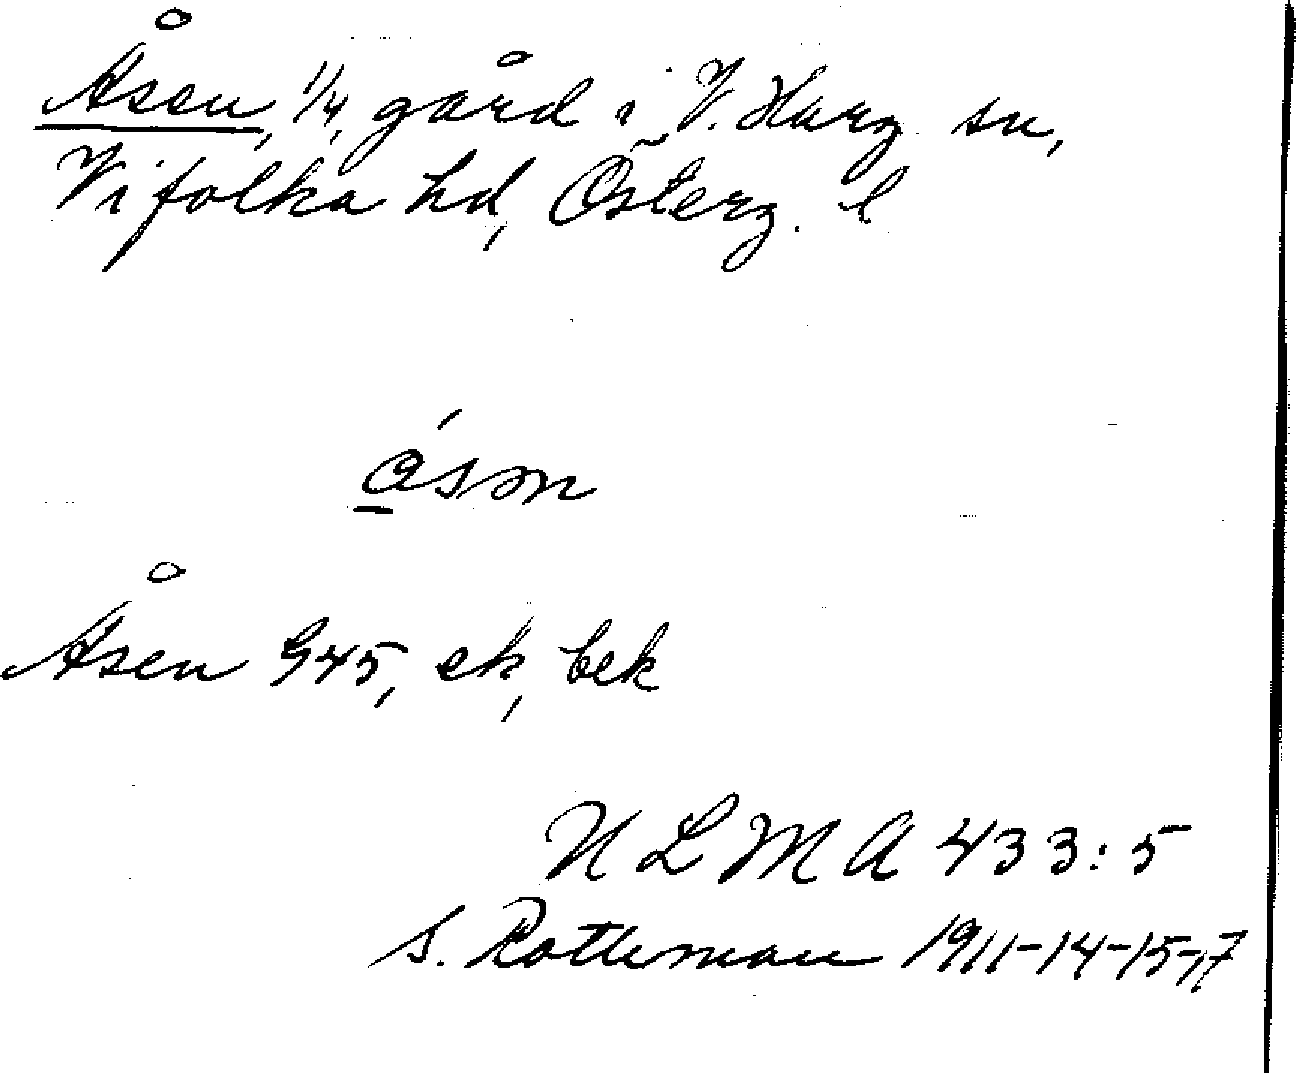 Åsen, 1/4, gård i V. Harg sn,
Vifolka hd, Österg. l
ásən
Åsen G45, ek, bek
ULMA 433:5
S. Rothman 1911-14-15-17